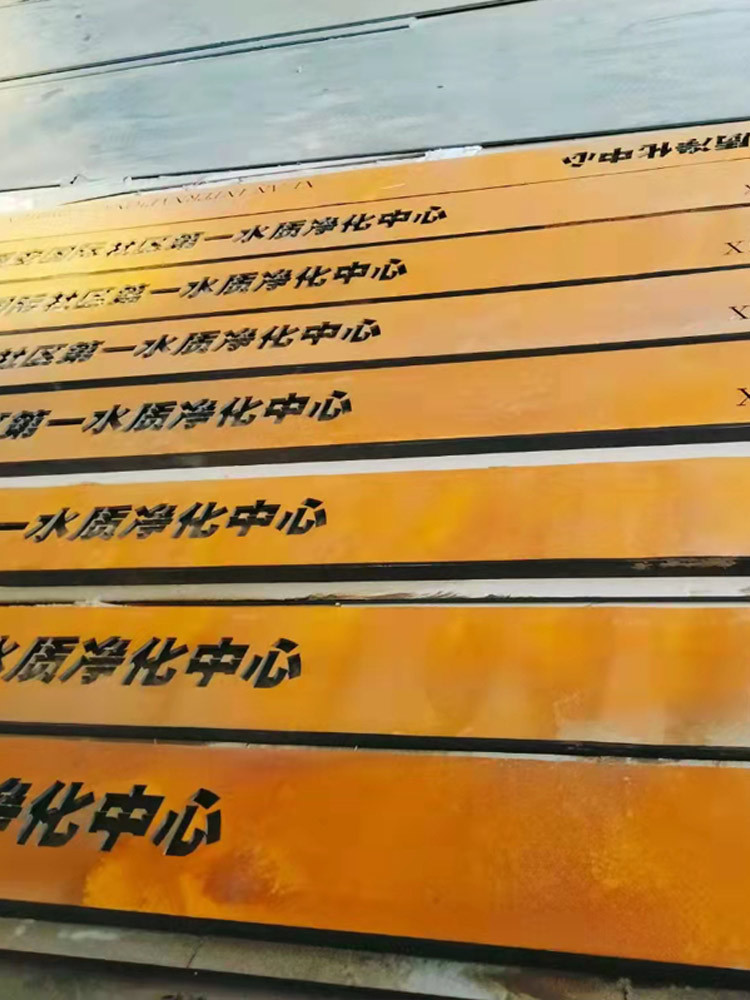 质净化中心
国际社区第一水质净化中心
际社区第一水质净化中心
社区第一水质净化中心
第一水质净化中心
一水质净化中心
水质净化中心
净化中心
X
X
X